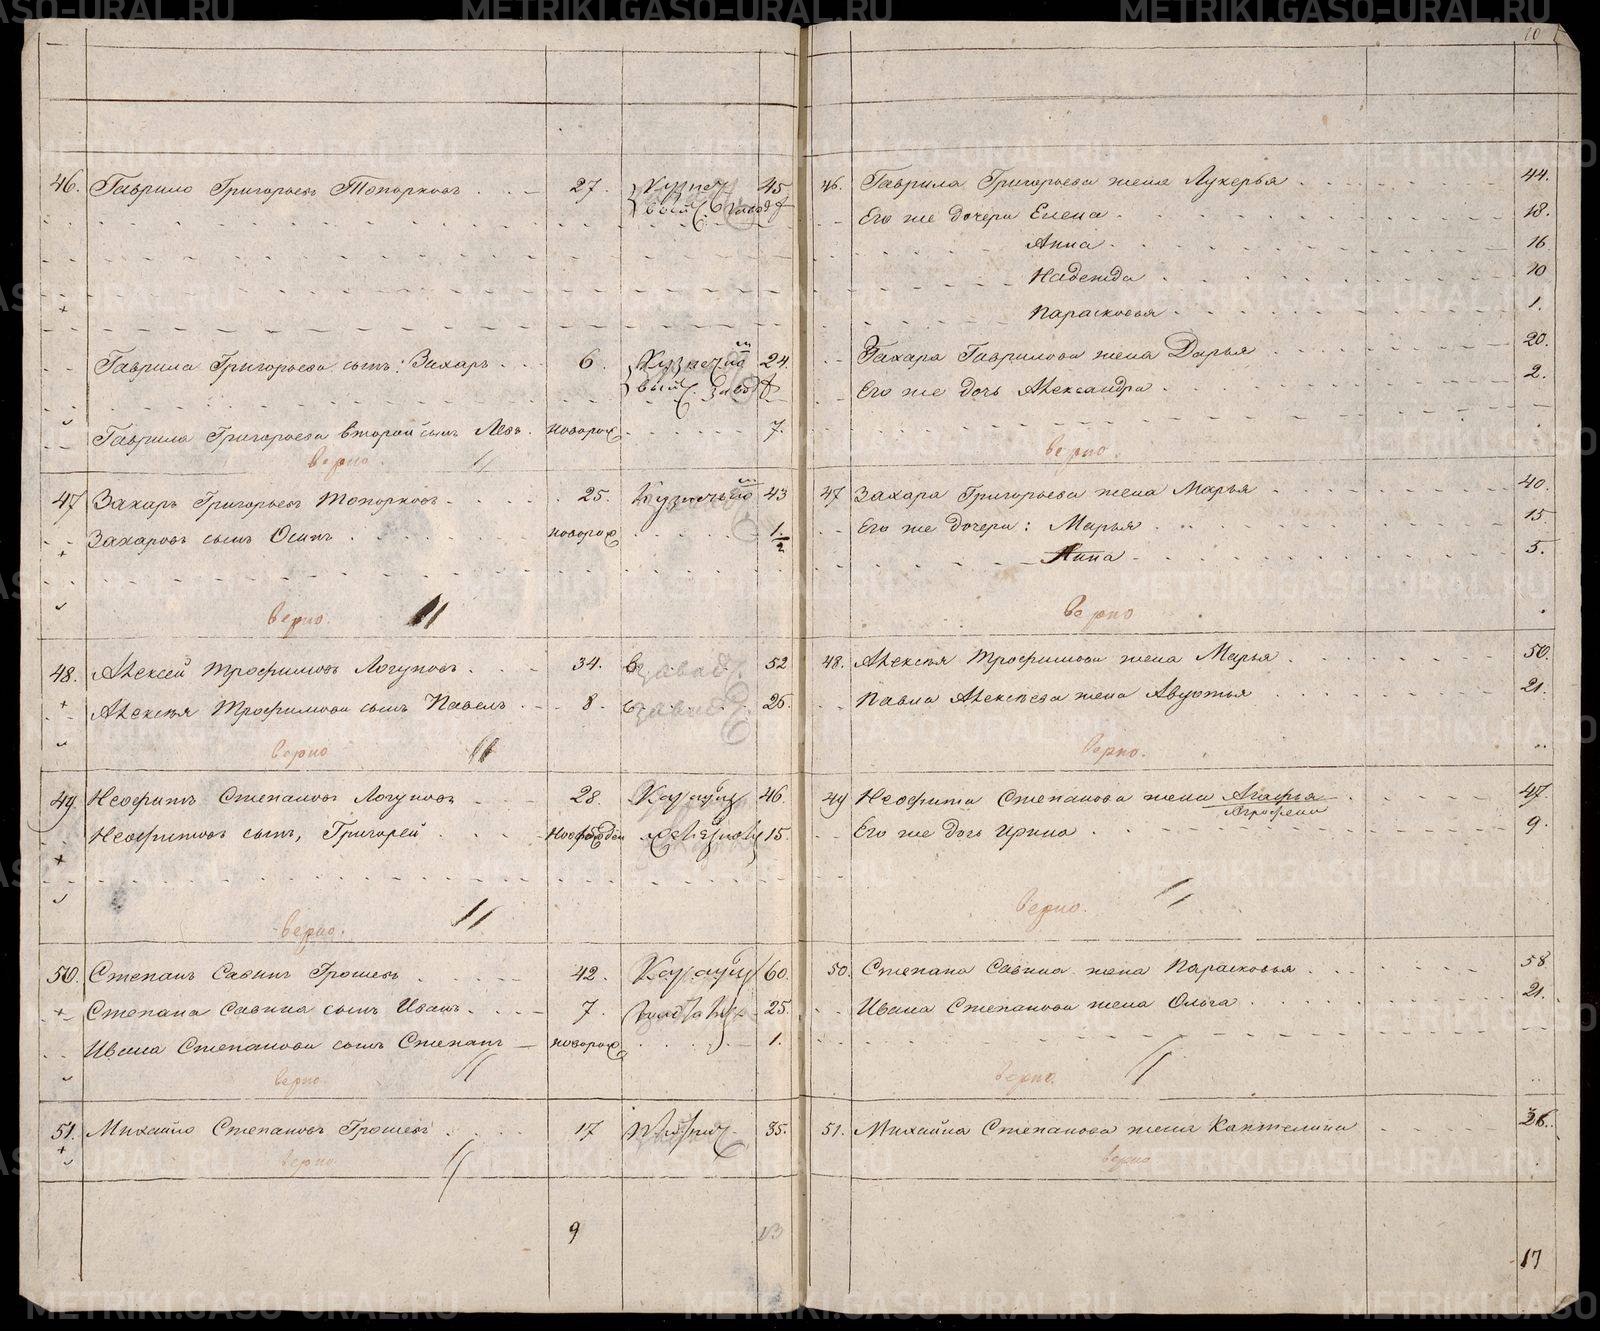 METRIKI.GASO-URAL.RU
10
46. Гаврило Григорьевъ Топорковъ 27. 45
Гаврила Григорьева сынъ: Захаръ 6. 24.
Гаврила Григорьева второй сынъ Левъ. новорож 7.
верно.
47 Захаръ Григорьевъ Топорковъ 25. 43
Захаровъ сынъ Осипъ новорож 1/2
верно.
48. Алексей Трофимовъ Логуновъ 34. 52
Алексея Трофимова сынъ Павелъ 8. завод 26.
верно
49 Неофитъ Степановъ Логуновъ 28. 46.
Неофитовъ сынъ, Григорей 15.
верно.
50. Степанъ Савинъ Грошевъ 42. 60.
Степана Савина сынъ Иванъ 7. 25.
Ивана Степанова сынъ Степанъ новорож 1.
верно.
51. Михайло Степановъ Грошевъ 17 35.
верно
9 13
46. Гаврила Григорьева жена Лукерья 44.
Его же дочери Елена 18.
Анна 16
Надежда 10
Парасковья 1.
Захара Гаврилова жена Дарья 20.
Его же дочь Александра 2.
верно.
47 Захара Григорьева жена Марья 40.
Его же дочери: Марья 15
Анна 5.
верно
48. Алексея Трофимова жена Марья 50.
Павла Алексеева жена Авдотья 21.
верно.
49 Неофита Степанова жена Агафья 47.
Аграфена
Его же дочь Ирина 9.
верно.
50. Степана Савина жена Парасковья 58
Ивана Степанова жена Ольга 21.
верно.
51. Михайла Степанова жена Капителина 36.
верно
17